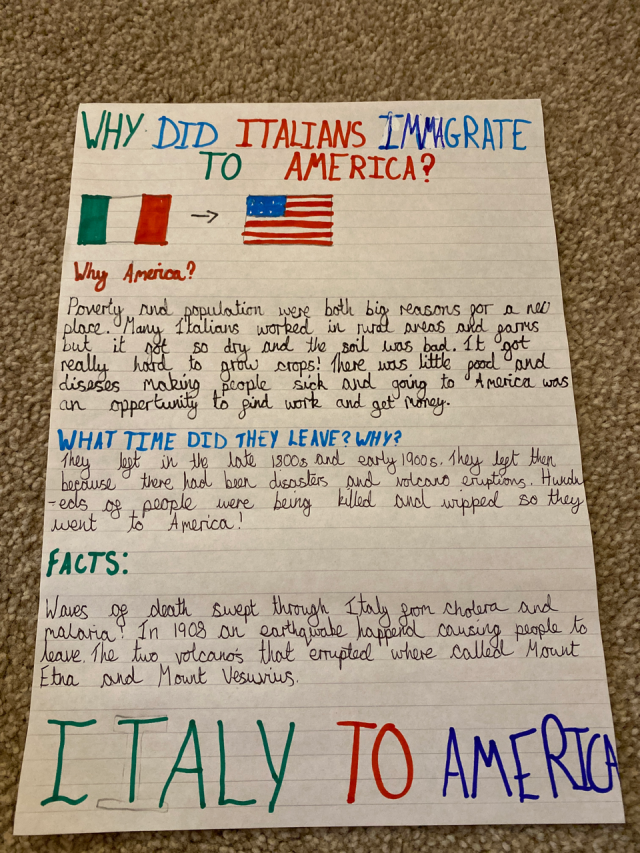 WHY DID ITALIANS IMMAGRATE
TO AMERICA?
Why America?
Poverty and population were both big reasons for a new
place. Many Italians worked in rural areas and farms
but it got so dry and the soil was bad. It got
really hard to grow crops! There was little food and
diseses making people sick and going to America was
an opportunity to find work and get money.
WHAT TIME DID THEY LEAVE? WHY?
They left in the late 1800s and early 1900s. They left then
because there had been disasters and volcano eruptions. Hundr
-eds of people were being killed and wipped so they
went to America!
FACTS:
Waves of death swept through Italy from cholera and
malaria! In 1908 an earthqwake happend causing people to
leave. The two volcano's that errupted where called Mount
Etna and Mount Vesuvius.
ITALY TO AMERICA